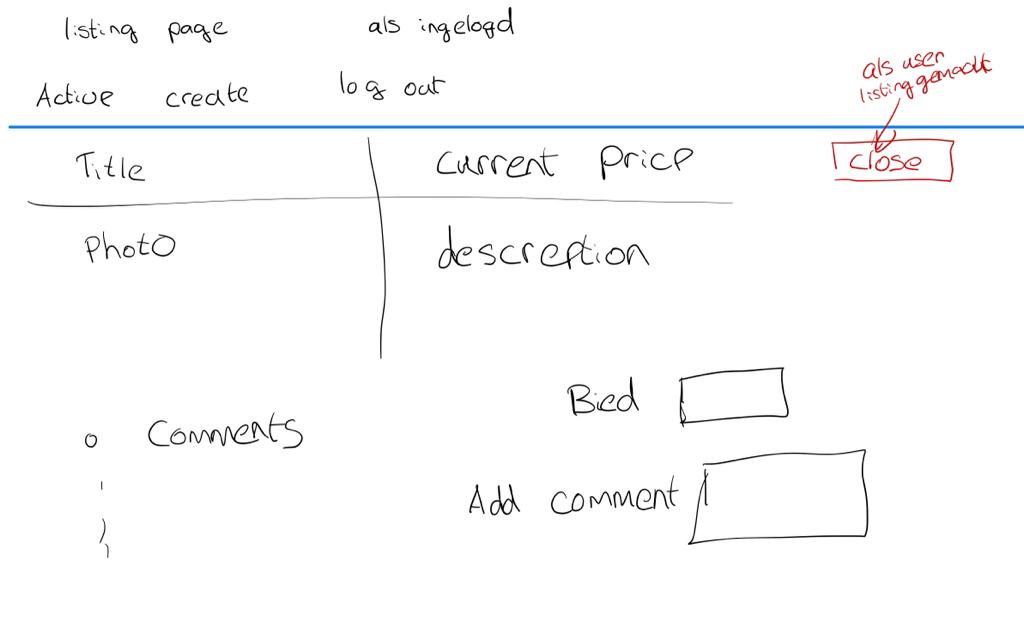 listing page als ingelogd
Active create log out
als user
listing gemaakt
Title current price close
Photo descreption
Bied
Comments
Add comment